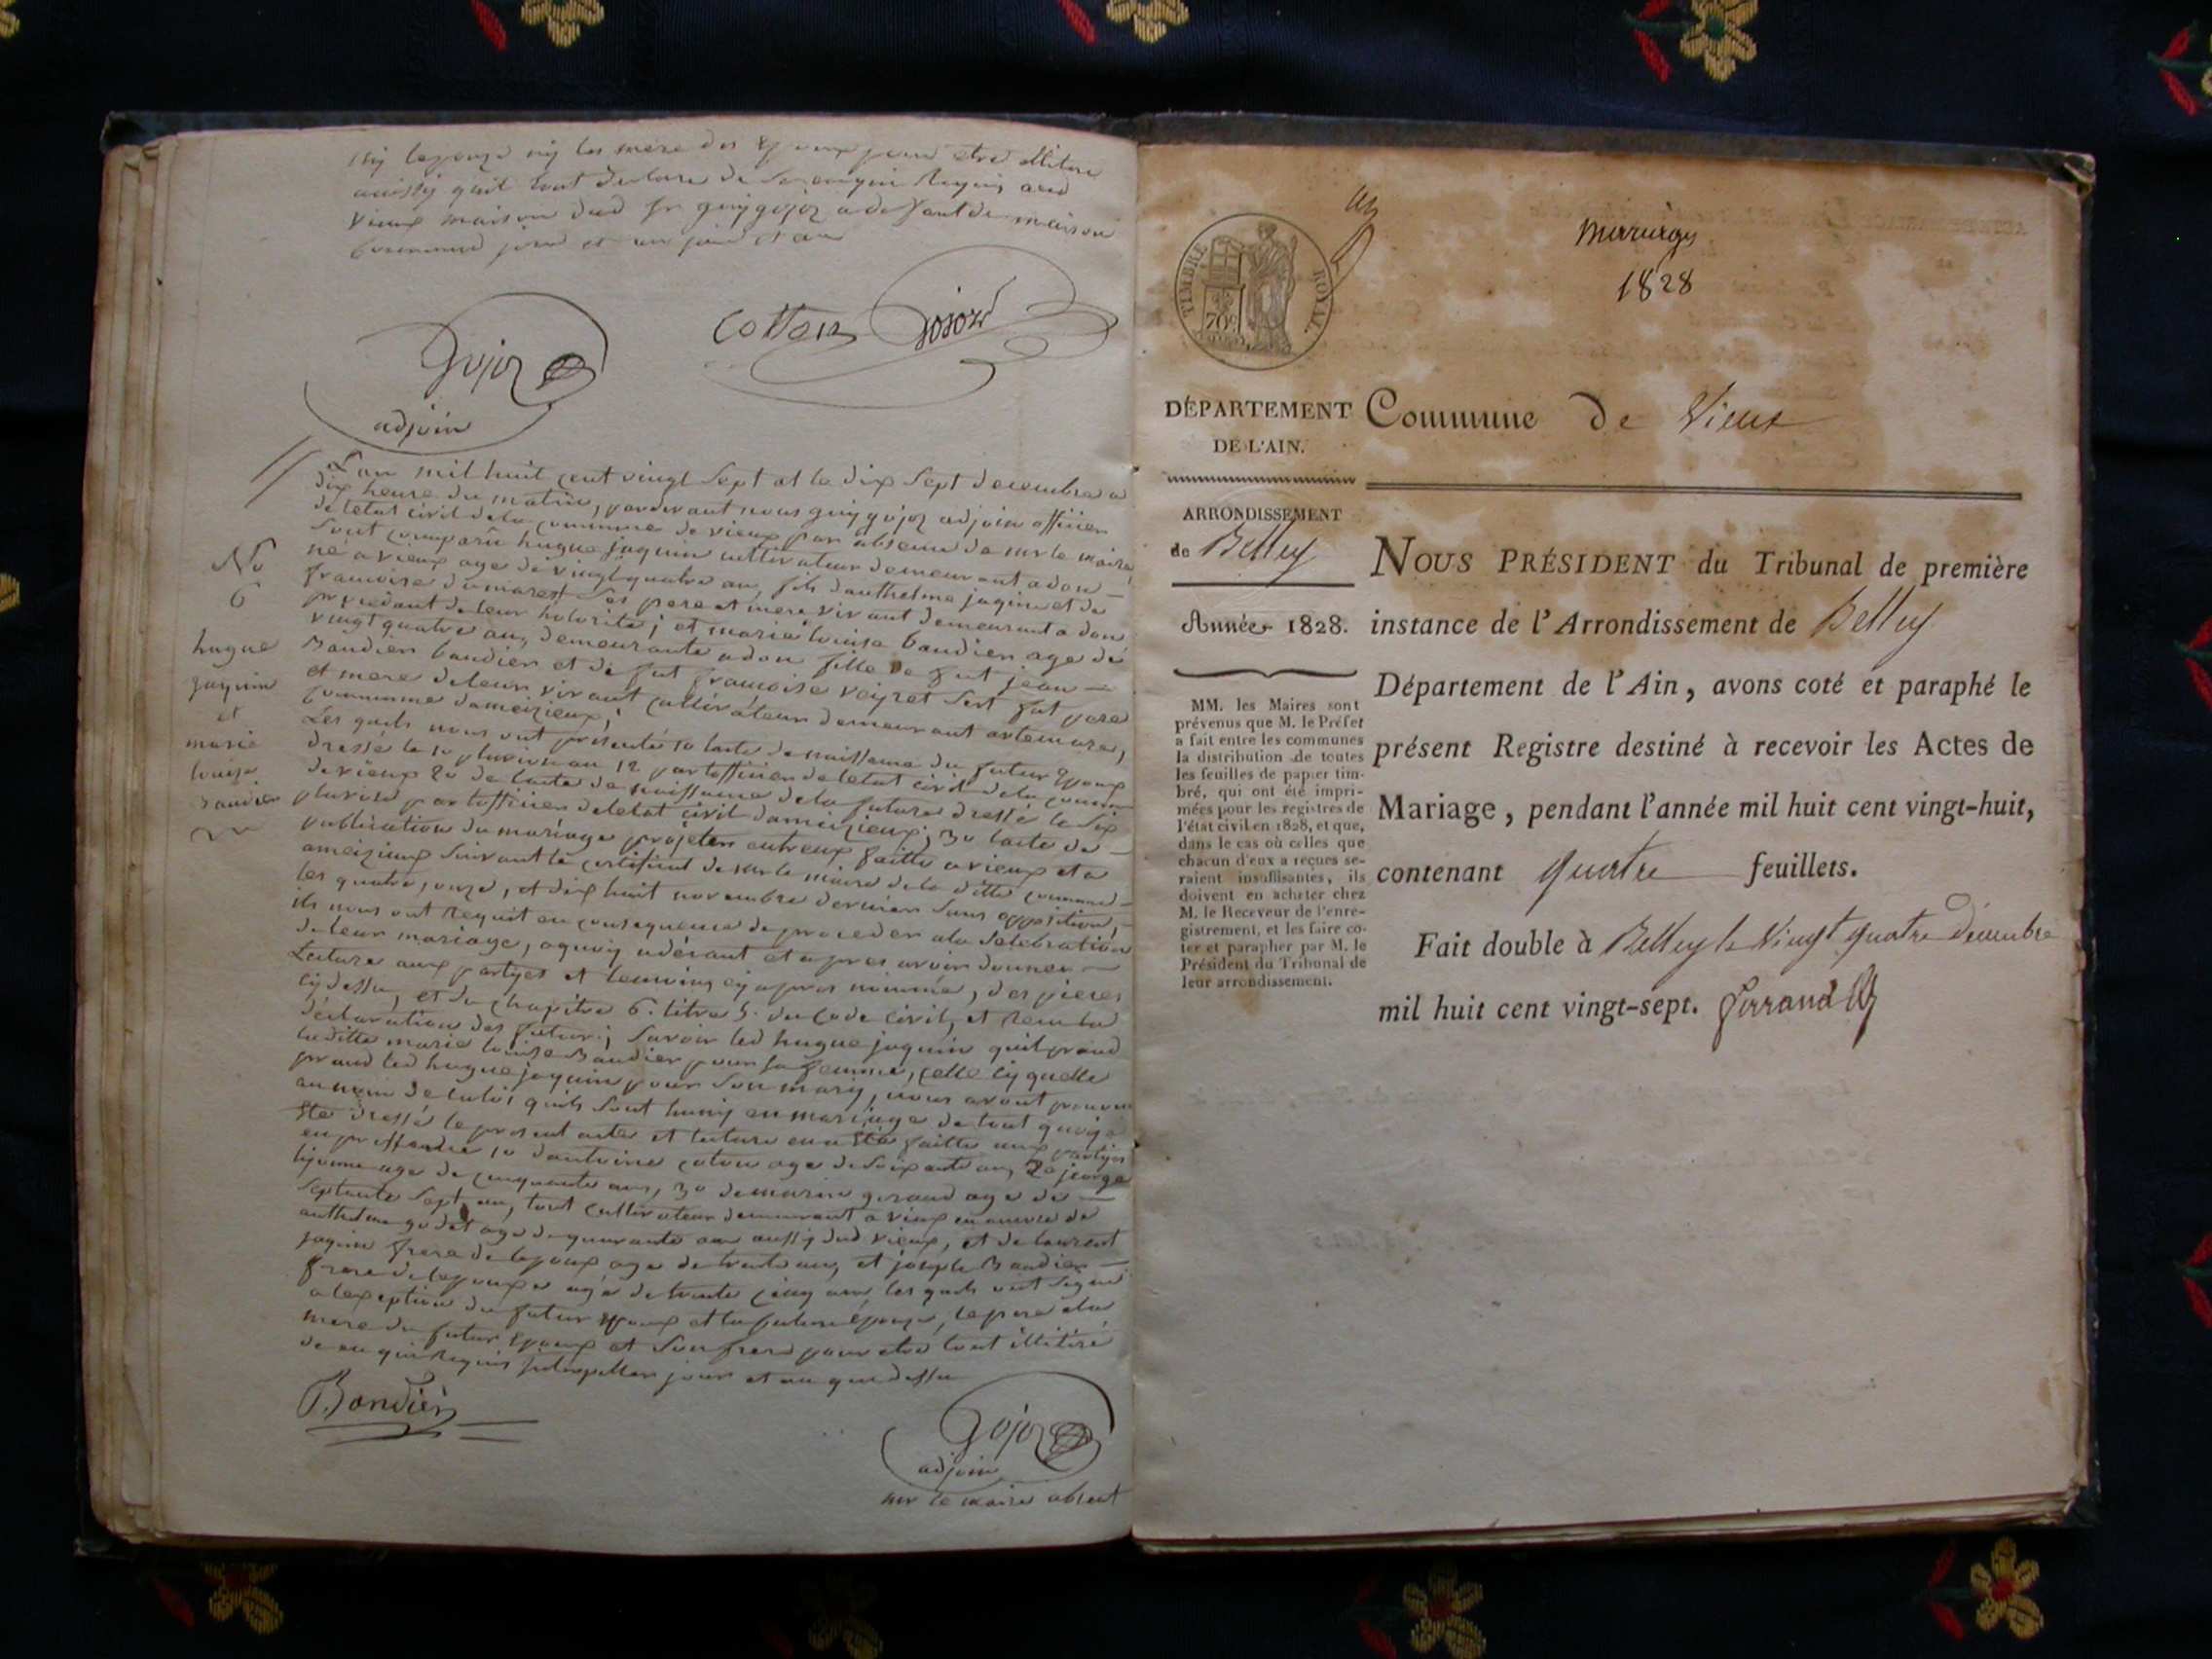 aussy quil
vieux maison dud sr guy gojoz a defaut de maison
commune jour et an
Gojoz
adjoin
Cotton
L'an mil huit cent vingt sept et le dix sept decembre a
dix heure du matin, pardevant nous guy gojoz adjoin officier
de letat civil de la commune de vieux par absence de mr le maire
sont comparu hugue joquin cultivateur demeurant a don
né a vieux age de vingt quatre an, fils d'anthelme joquin et de
francoise dumarest ses pere et mere vivant demeurant a don
et marie louise baudier age de
vingt quatre an, demeurante a don fille de fut jean
Baudier et de fut francoise veyret
et mere vivant cultivateur demeurant artemare,
commune dameizieux;
Les quels nous ont presenté 1o lacte de naissance du futur Epoux
dressé le 10 pluviose an 12 par lofficier de letat civil de la commune
de vieux 2o de lacte de naissance de la future dressé le six
pluviose par lofficier de letat civil dameizieux; 3o lacte de
publication du mariage projetter entreux faitte a vieux et a
ameizieux suivant le certificat de mr le maire de la ditte commune
les quatre, onze, et dix huit novembre dernier sans opposition,
ils nous ont requit en consequence de proceder a la selebration
de leur mariage, aquoy adérant et apres avoir donner
Lecture aux partyes et temoins cy apres nommé, des pieces
cy dessu, et du chapitre 6. titre 5. du Code civil, et
déclaration des futur; savoir led hugue joquin quil prend
laditte marie louise Baudier pour sa femme, celle cy quelle
prend led hugue joquin pour son mary, nous avont prononcé
au nom de la loi quils sont huny en mariage de tout quoy a
Eté dressé le present acte et lecture en a Eté faitte aux partyes
en pressence 1o dantoine coton age de soixante an, 2o jeorge
age de cinquante ans, 3o
septante sept an, tout cultivateur demeurant a vieux
anthelme godet age de quarante an aussy dud vieux, et de laurent
joquin frere de lepoux age de trente an, et joseph Baudier
frere de lepouse agé de trente cinq an les quels ont signé
a lexeption du futur Epoux et la future Epouse, le pere et la
mere du futur Epoux et son frere pour etre tout illitéré
de ce jour et an que dessu
Bondier
Gojoz
adjoin
mr le maire absent
No
6
hugue
joquin
et
marie
louise
Baudier
TIMBRE ROYAL.
70c
Mariages
1828
DÉPARTEMENT
DE L'AIN.
Commune de Vieux
ARRONDISSEMENT
de Belley
Année 1828.
MM. les Maires sont
prévenus que M. le Préfet
a fait entre les communes
la distribution de toutes
les feuilles de papier tim-
bré, qui ont été impri-
mées pour les registres de
l'état civil en 1828, et que,
dans le cas où celles que
chacun d'eux a reçues se-
raient insuffisantes, ils
doivent en acheter chez
M. le Receveur de l'enre-
gistrement, et les faire co-
ter et parapher par M. le
Président du Tribunal de
leur arrondissement.
NOUS PRÉSIDENT du Tribunal de première
instance de l'Arrondissement de Belley
Département de l'Ain, avons coté et paraphé le
présent Registre destiné à recevoir les Actes de
Mariage, pendant l'année mil huit cent vingt-huit,
contenant quatre feuillets.
Fait double à Belley le Vingt quatre décembre
mil huit cent vingt-sept. Ferrand